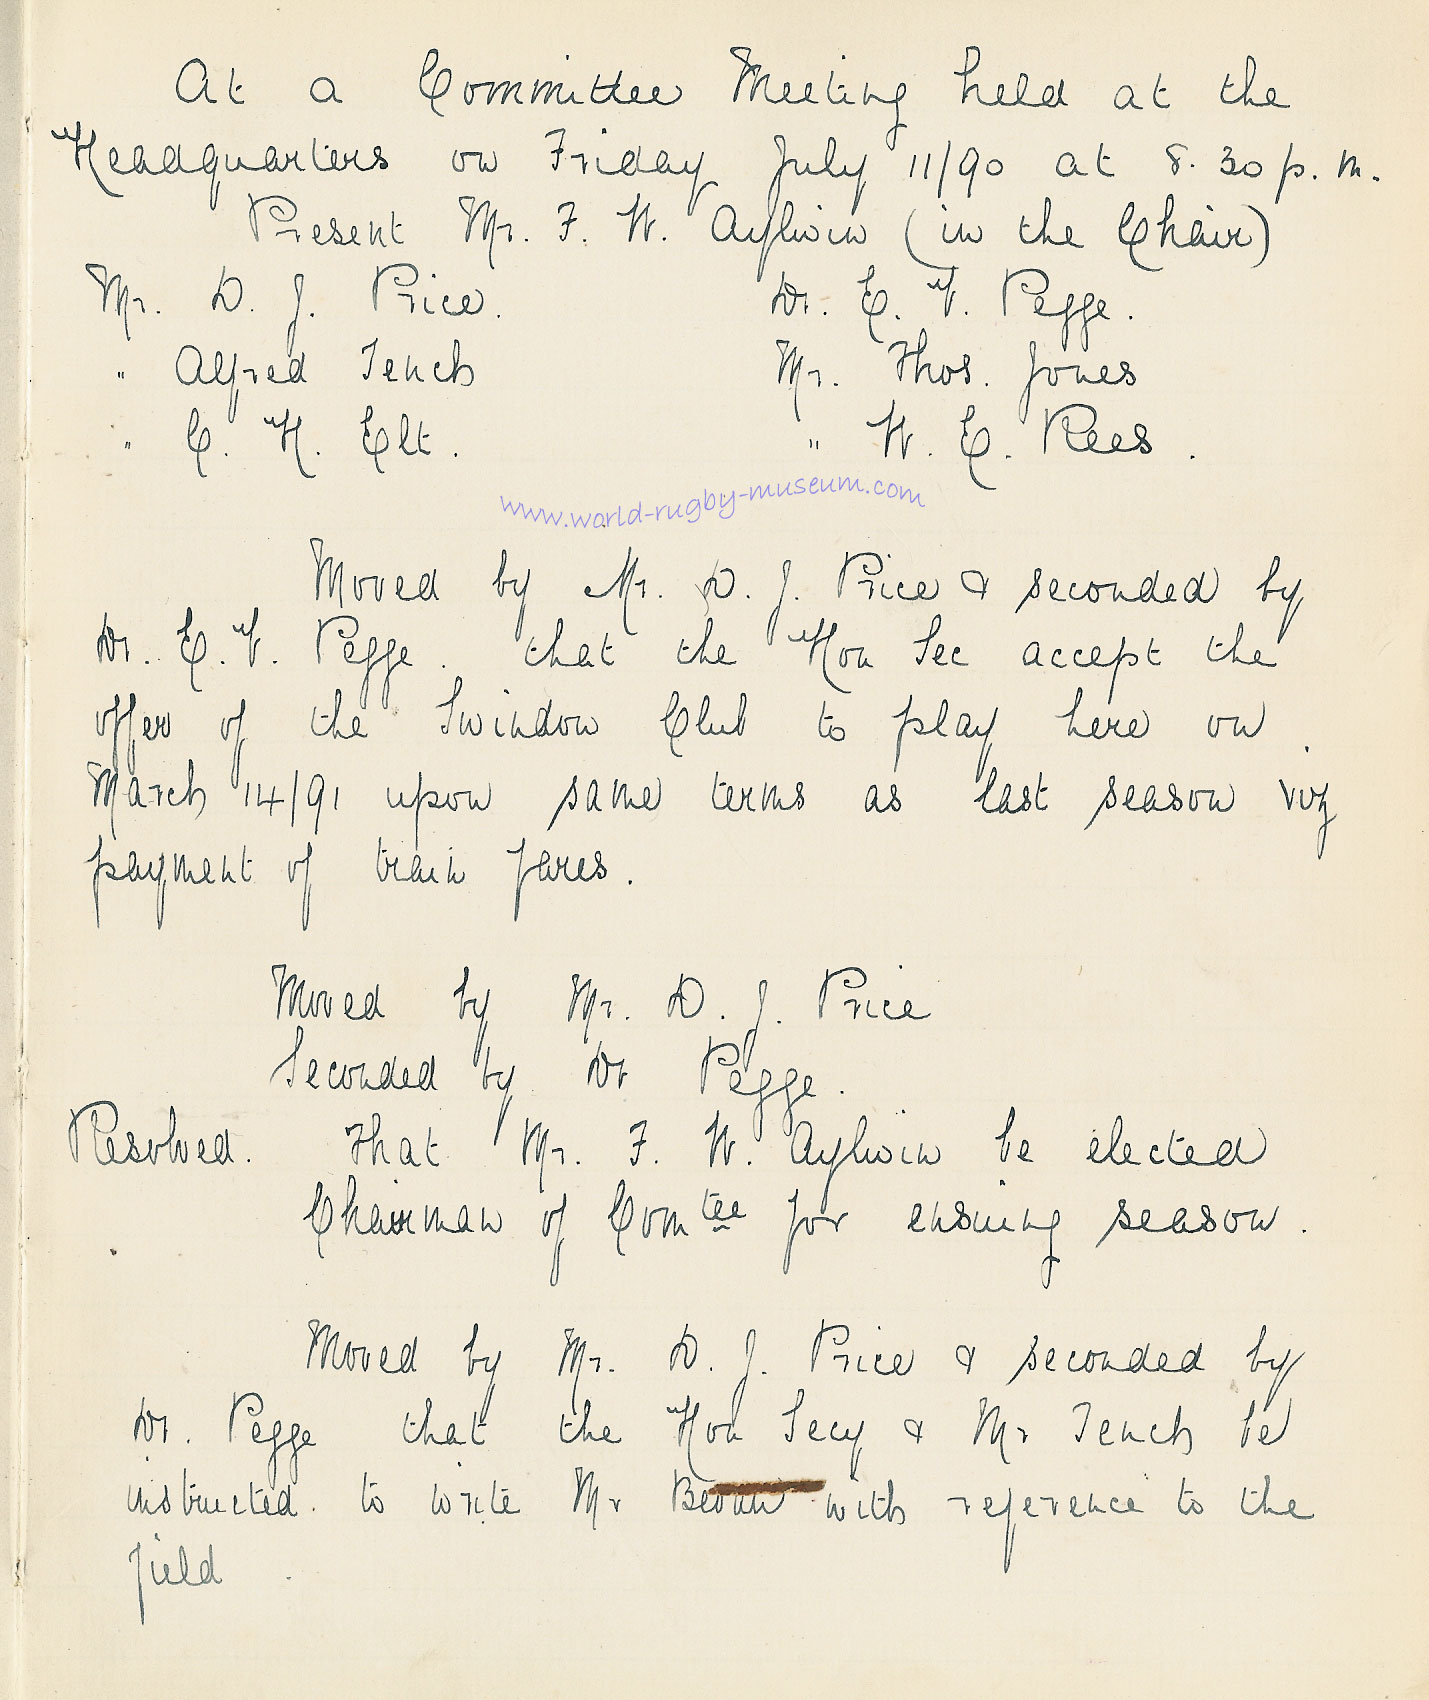 At a Committee Meeting held at the
Headquarters on Friday July 11/90 at 8.30 p.m.
Present Mr. F. W. Aylwin (in the Chair)
Mr. D. J. Price. Dr. E. V. Pegge.
" Alfred Tench Mr. Thos. Jones
" C. H. Elt. " W. E. Rees.
www.world-rugby-museum.com
Moved by Mr. D. J. Price & seconded by
Dr. E. V. Pegge. that the Hon Sec accept the
offer of the Swindon Club to play here on
March 14/91 upon same terms as last season viz
payment of train fares.
Moved by Mr. D. J. Price
Seconded by Dr Pegge.
Resolved. That Mr. F. W. Aylwin be elected
Chairman of Comtee for ensuing season.
Moved by Mr. D. J. Price & seconded by
Dr. Pegge that the Hon Secy & Mr Tench be
instructed to write Mr with reference to the
field.